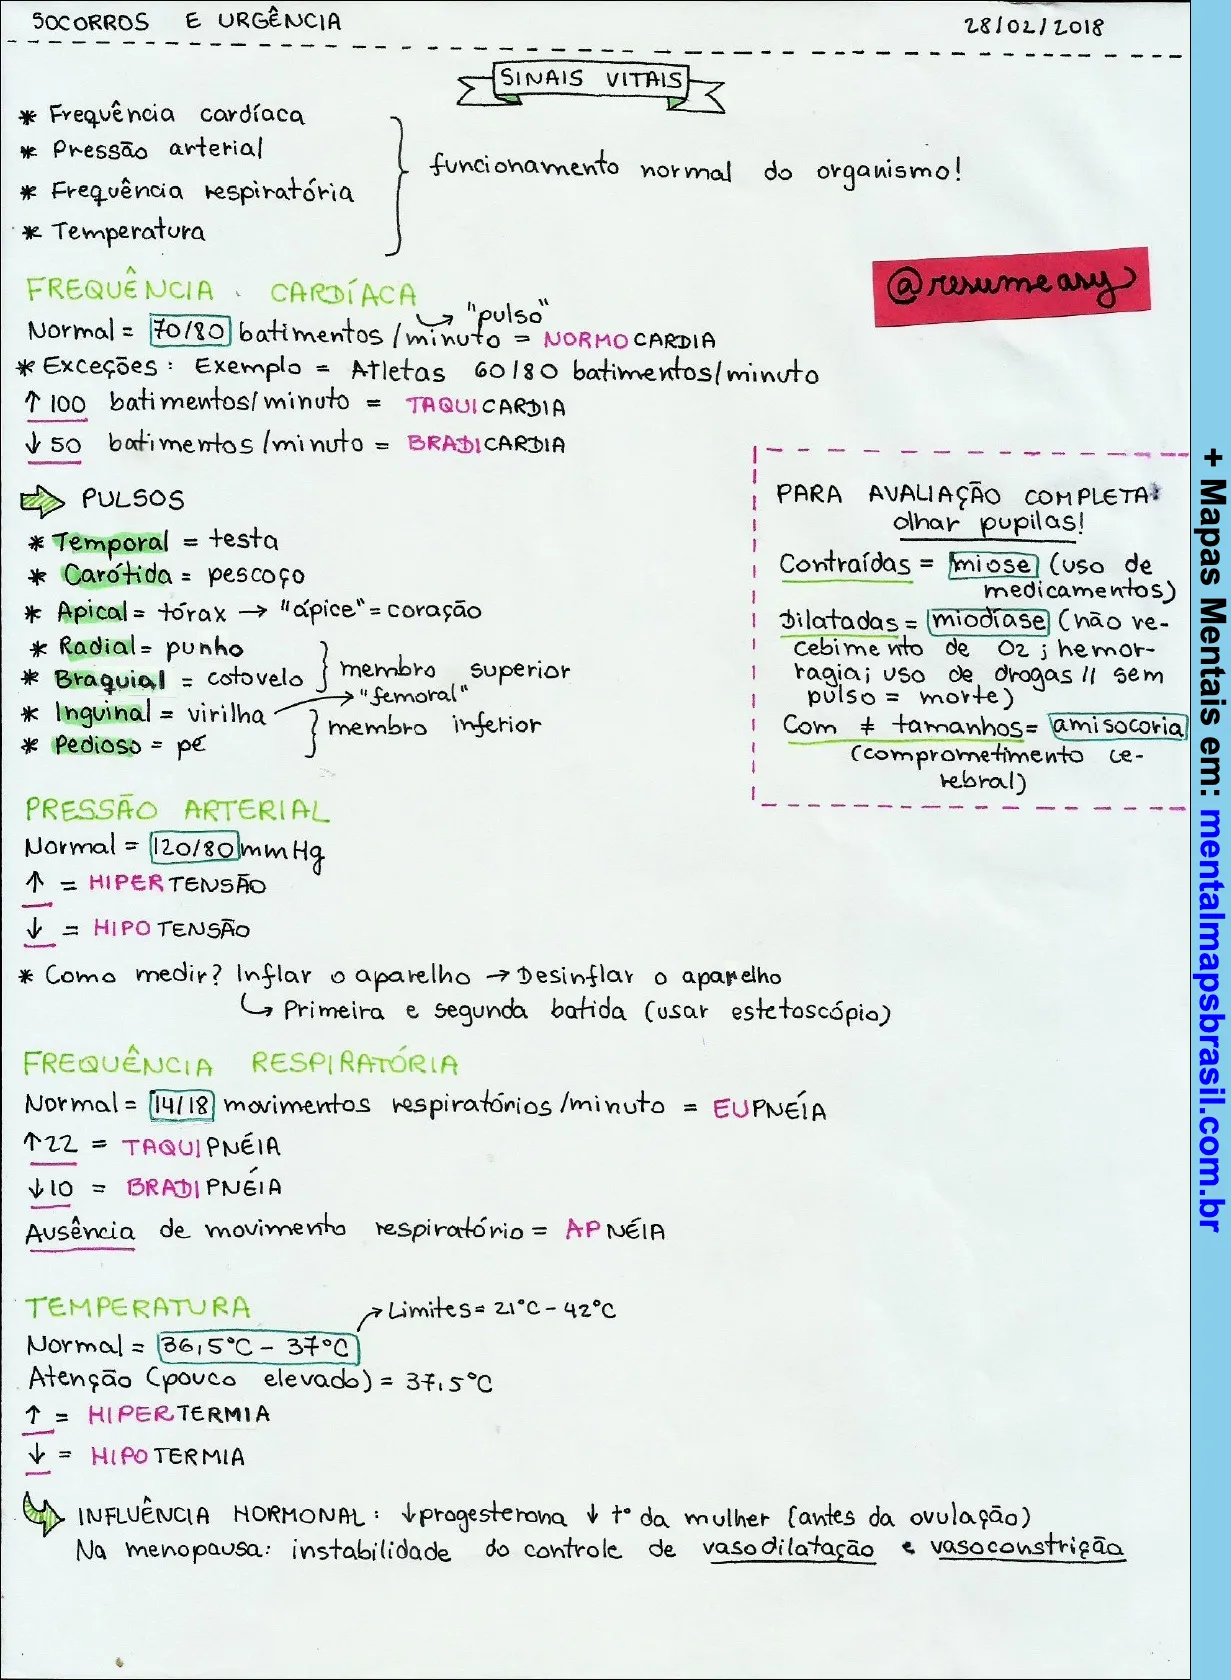 SOCORROS E URGÊNCIA
28/02/2018
SINAIS VITAIS
* Frequência cardíaca
* Pressão arterial
* Frequência respiratória
* Temperatura
funcionamento normal do organismo!
@resumeasy
FREQUÊNCIA CARDÍACA
"pulso"
Normal = 70/80 batimentos/minuto = NORMOCARDIA
* Exceções: Exemplo = Atletas 60/80 batimentos/minuto
↑ 100 batimentos/minuto = TAQUICARDIA
↓ 50 batimentos/minuto = BRADICARDIA
PULSOS
* Temporal = testa
* Carótida = pescoço
* Apical = tórax → "ápice" = coração
* Radial = punho
* Braquial = cotovelo
membro superior
* Inguinal = virilha → "femoral"
* Pedioso = pé
membro inferior
PARA AVALIAÇÃO COMPLETA:
olhar pupilas!
Contraídas = miose (uso de
medicamentos)
Dilatadas = miodíase (não re-
cebimento de O2; hemor-
ragia; uso de drogas // sem
pulso = morte)
Com ≠ tamanhos = amisocoria
(comprometimento ce-
rebral)
PRESSÃO ARTERIAL
Normal = 120/80 mmHg
↑ = HIPERTENSÃO
↓ = HIPOTENSÃO
* Como medir? Inflar o aparelho → Desinflar o aparelho
↳ Primeira e segunda batida (usar estetoscópio)
FREQUÊNCIA RESPIRATÓRIA
Normal = 14/18 movimentos respiratórios/minuto = EUPNEÍA
↑22 = TAQUIPNÉIA
↓10 = BRADIPNÉIA
Ausência de movimento respiratório = APNÉIA
TEMPERATURA
→ Limites = 21°C - 42°C
Normal = 36,5°C - 37°C
Atenção (pouco elevado) = 37,5°C
↑ = HIPERTERMIA
↓ = HIPOTERMIA
INFLUÊNCIA HORMONAL: ↓progesterona ↓ t° da mulher (antes da ovulação)
Na menopausa: instabilidade do controle de vasodilatação e vasoconstrição
+ Mapas Mentais em: mentalmapsbrasil.com.br